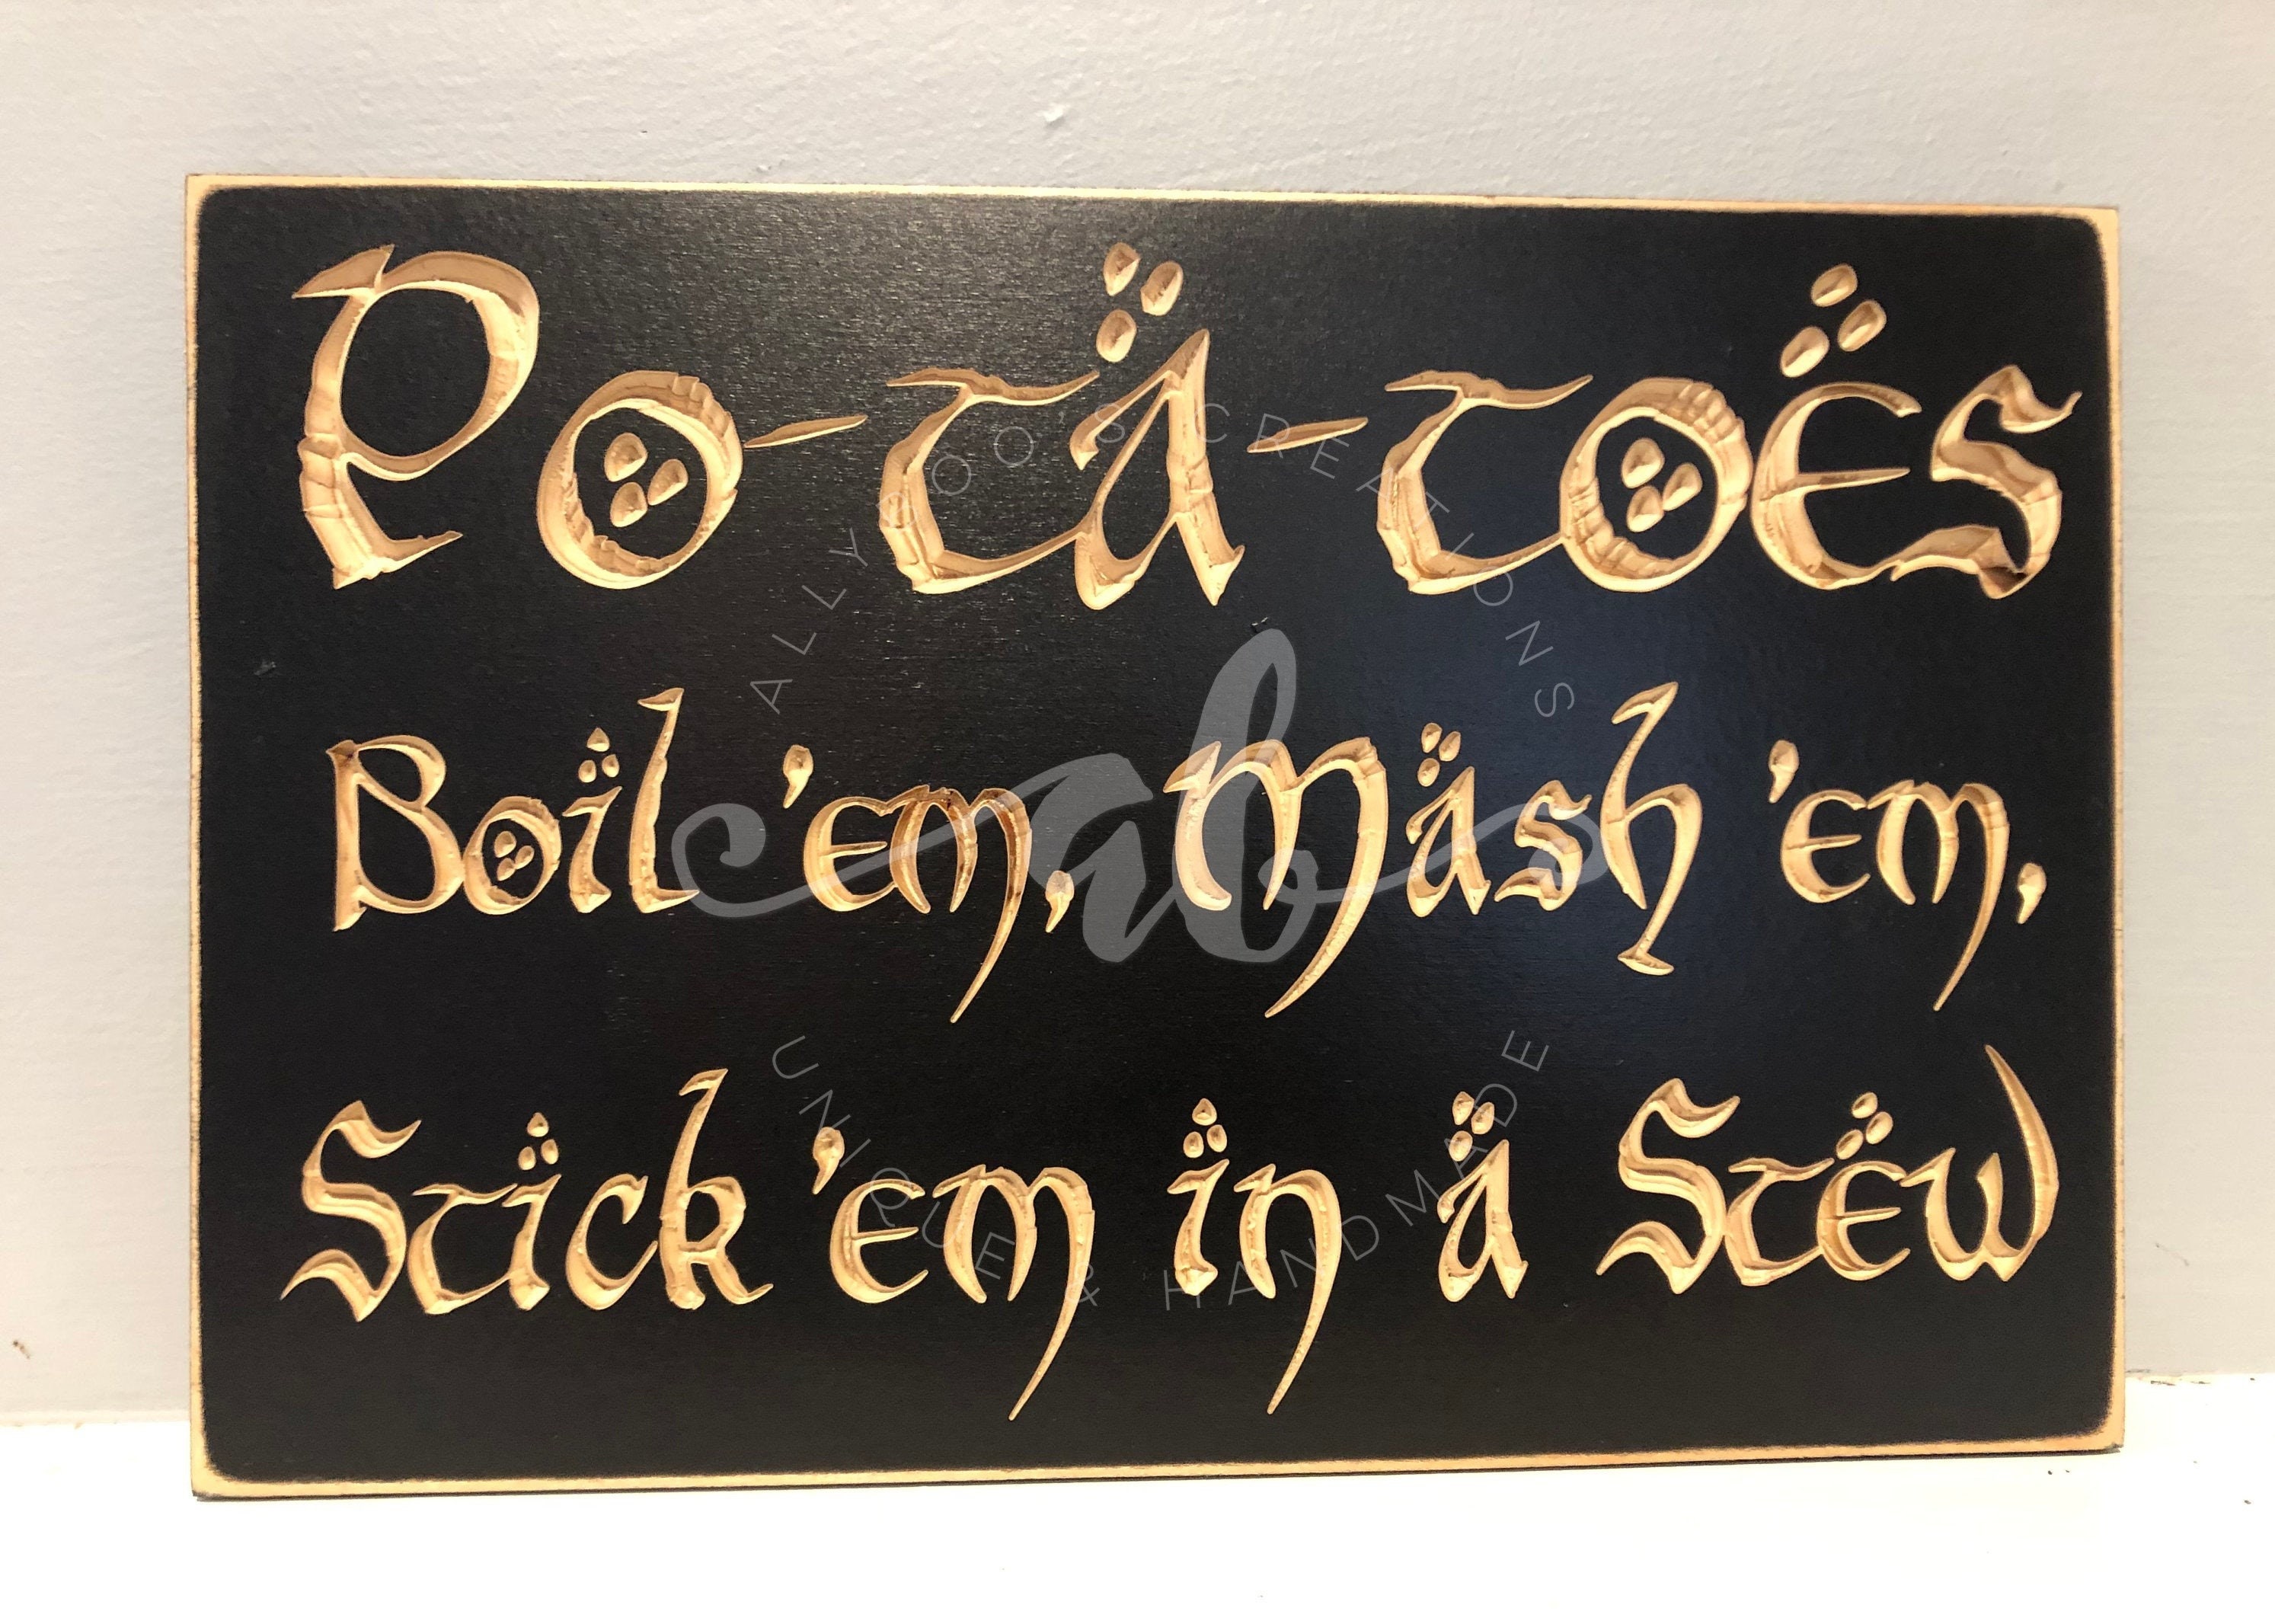 Po-ta-toes
Boil 'em, Mash 'em,
Stick 'em in a Stew
ALLYBOO'S CREATIONS
ab
UNIQUE & HANDMADE